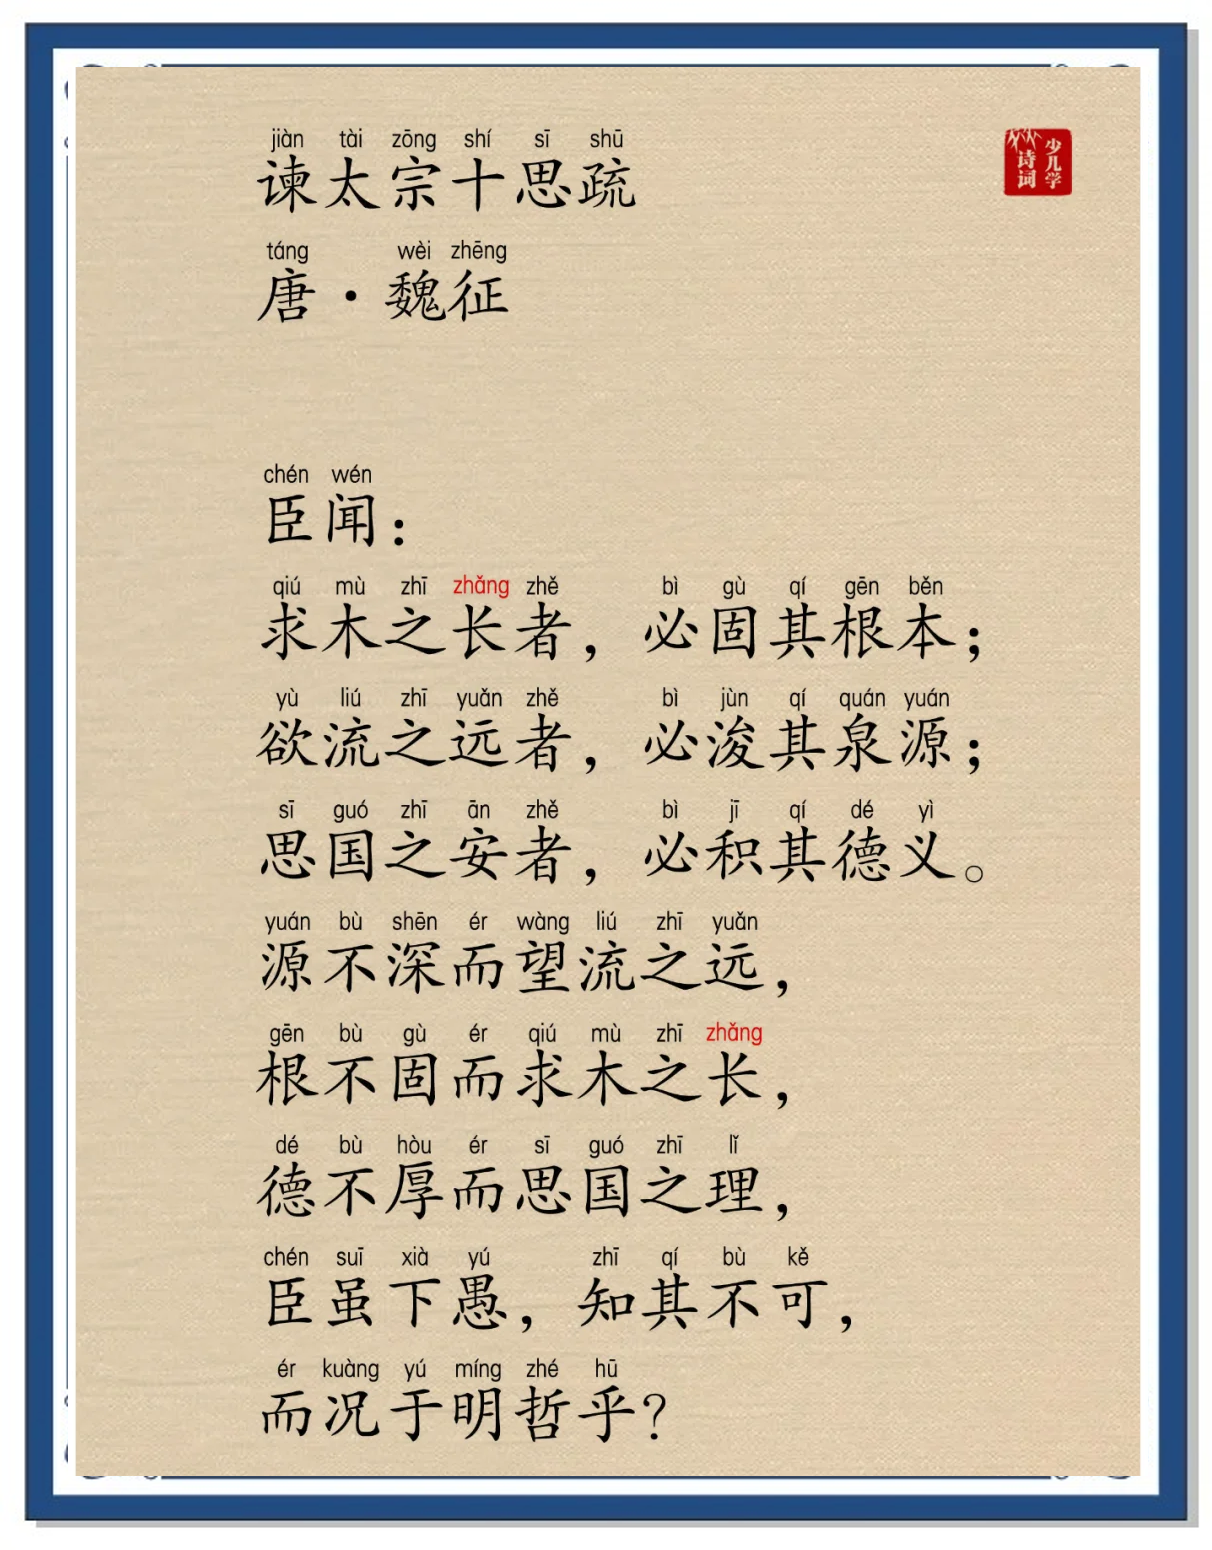 jiàn tài zōng shí sī shū
谏太宗十思疏
少儿学
诗词
táng wèi zhēng
唐·魏征
chén wén
臣闻：
qiú mù zhī zhǎng zhě bì gù qí gēn běn
求木之长者，必固其根本；
yù liú zhī yuǎn zhě bì jùn qí quán yuán
欲流之远者，必浚其泉源；
sī guó zhī ān zhě bì jī qí dé yì
思国之安者，必积其德义。
yuán bù shēn ér wàng liú zhī yuǎn
源不深而望流之远，
gēn bù gù ér qiú mù zhī zhǎng
根不固而求木之长，
dé bù hòu ér sī guó zhī lǐ
德不厚而思国之理，
chén suī xià yú zhī qí bù kě
臣虽下愚，知其不可，
ér kuàng yú míng zhé hū
而况于明哲乎？